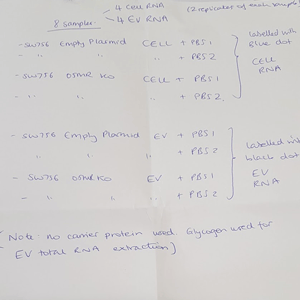 4 Cell RNA (2 replicates of each sample)
8 samples
4 EV RNA
- SW756 Empty Plasmid CELL + PBS1
- " " " + PBS2
- SW756 OSMR KO CELL + PBS1
- " " " + PBS2
labelled with
Blue dot
CELL
RNA
- SW756 Empty Plasmid EV + PBS1
" " + PBS2
- SW756 OSMR KO EV + PBS1
- " " " + PBS2
labelled with
black dot
EV
RNA
Note: no carrier protein used. Glycogen used for
EV total RNA extraction]